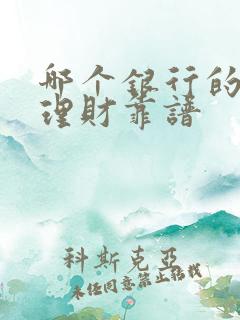 哪个银行的
理财靠谱
科斯克亚
未经同意禁止转载